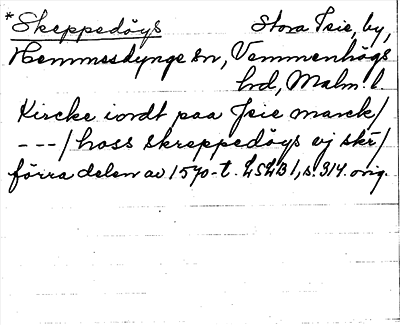 *Skeppedöys Stora Isie, by,
Hemmesdynge sn, Vemmenhögs
hd, Malm. l.
Kircke iordt paa Jsie marck/
---/ hoss skreppedöys ej skr/
förra delen av 1570-t. LSLB 1, s. 314. orig.